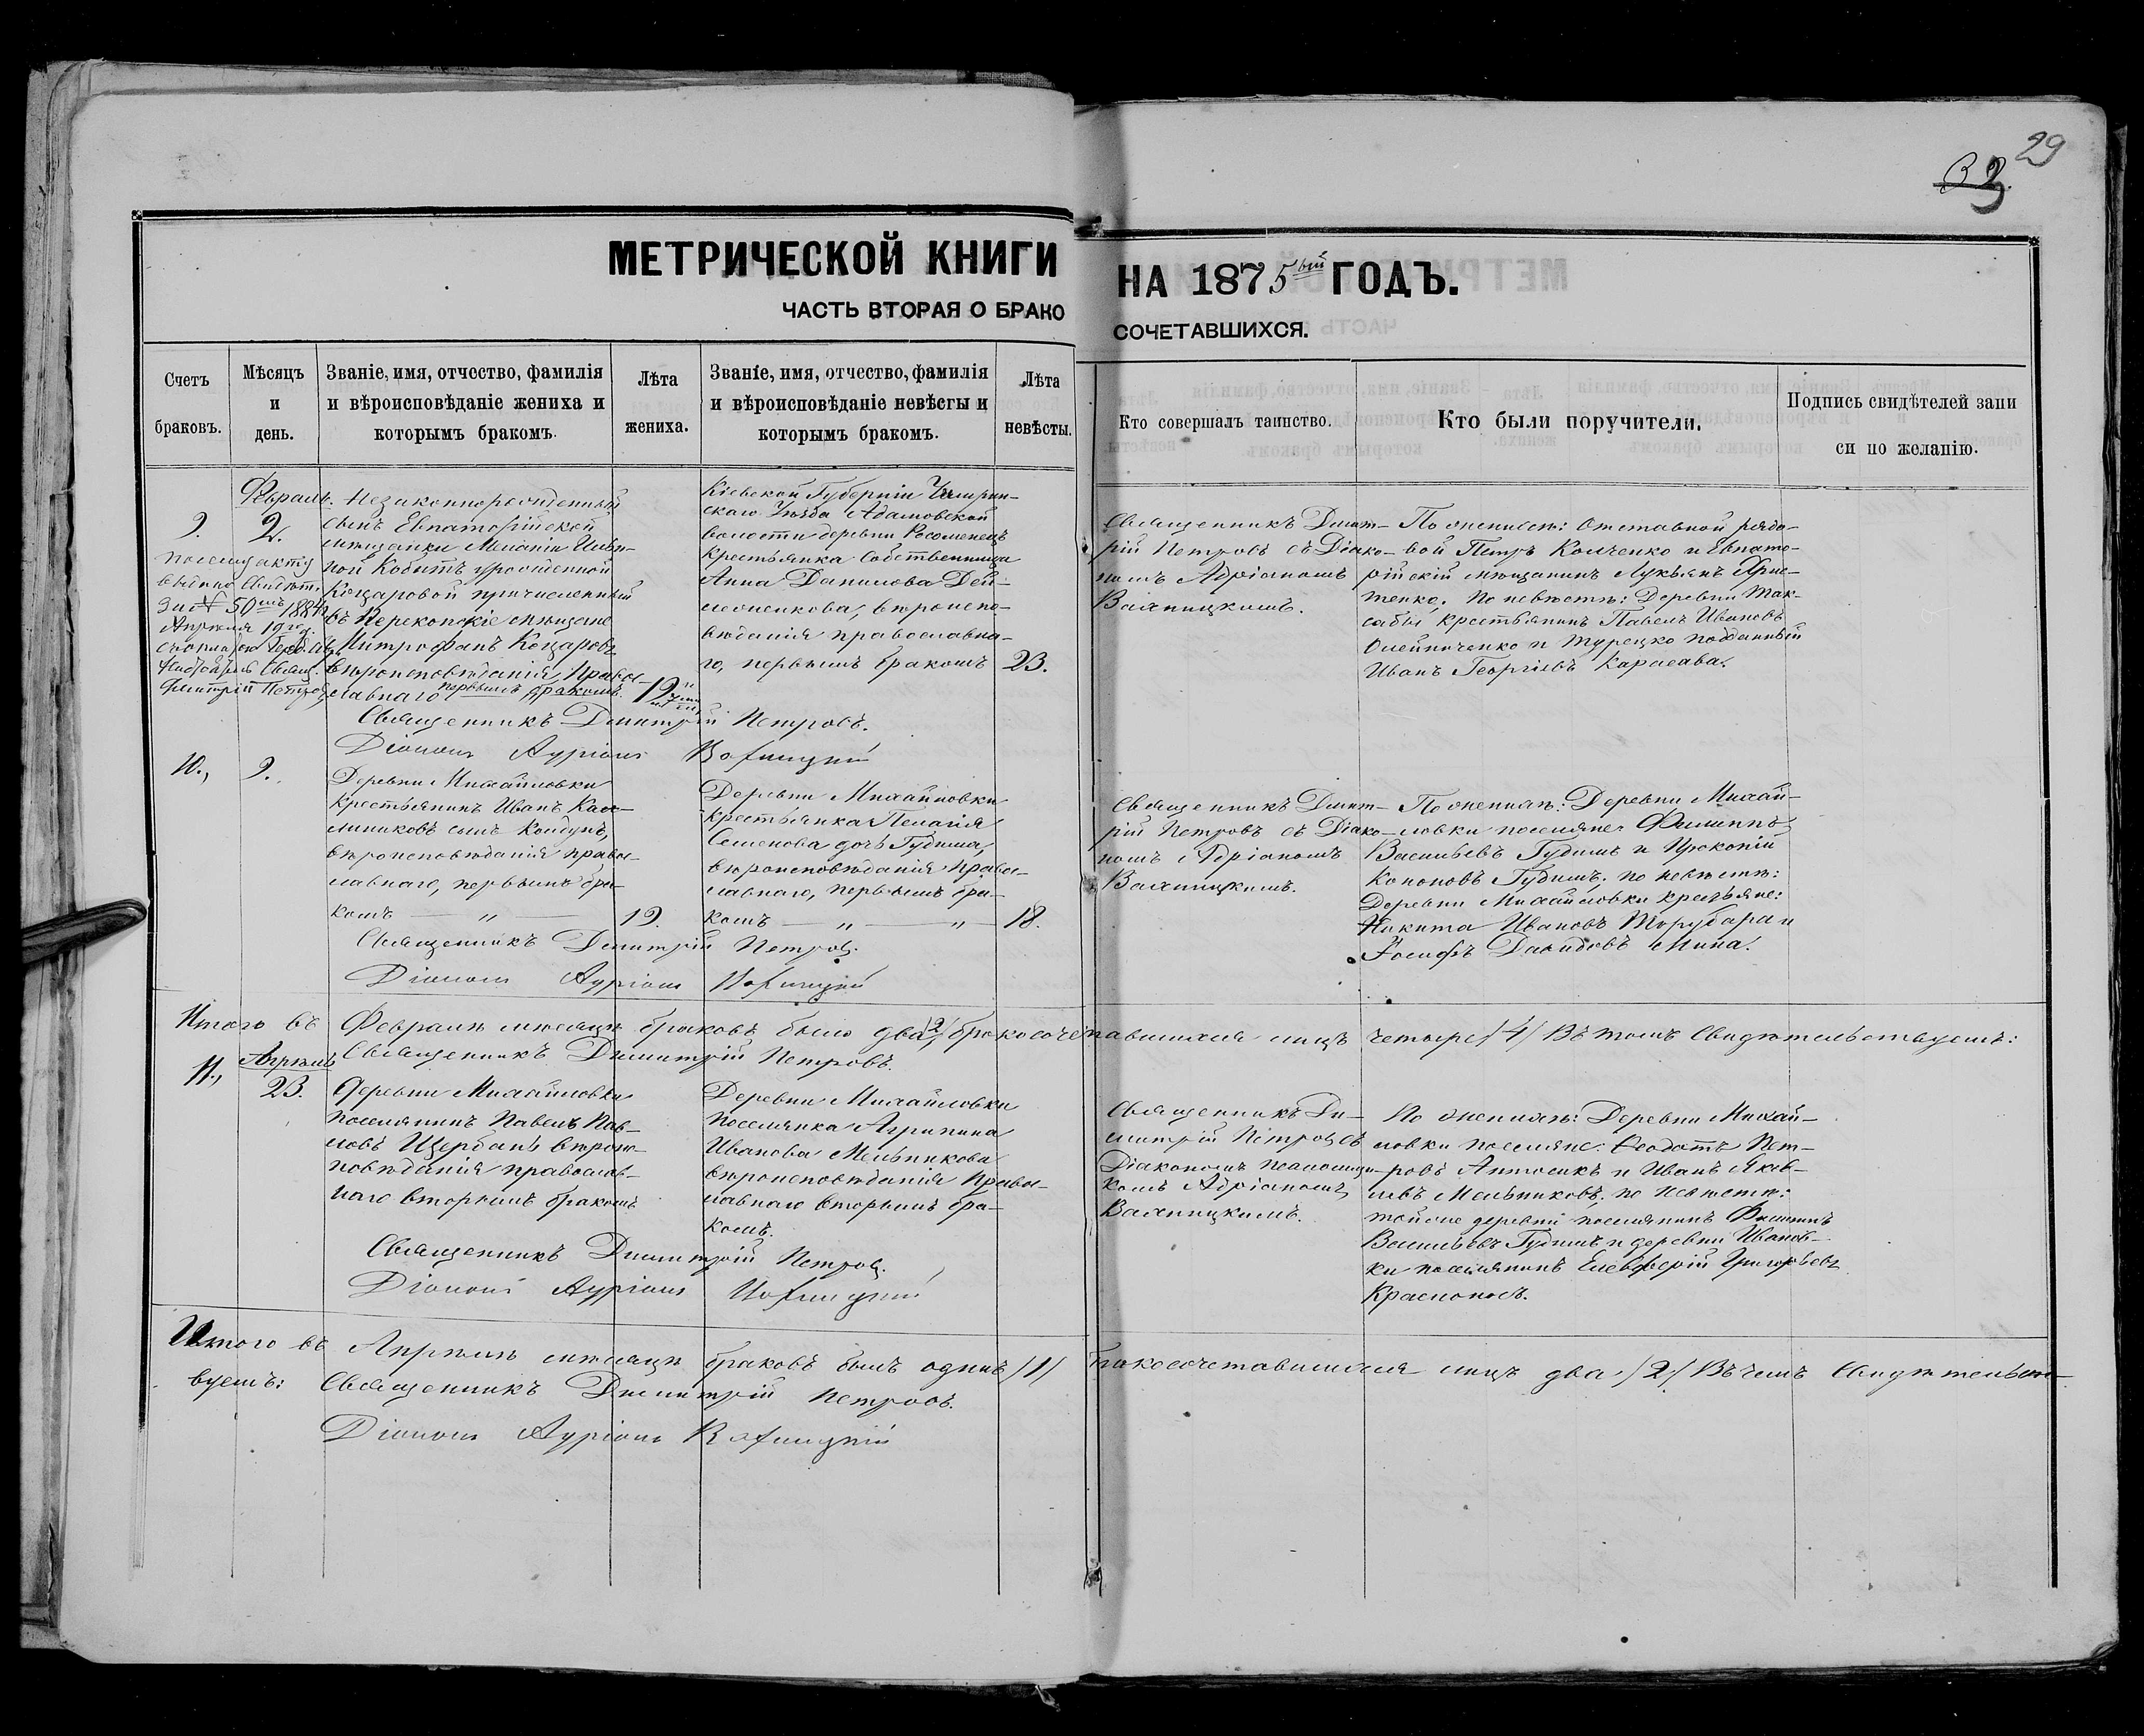 29
МЕТРИЧЕСКОЙ КНИГИ НА 1875ый ГОДЪ.
ЧАСТЬ ВТОРАЯ О БРАКОСОЧЕТАВШИХСЯ.
Счетъ браковъ.
Мѣсяцъ и день.
Званіе, имя, отчество, фамилія и вѣроисповѣданіе жениха и которымъ бракомъ.
Лѣта жениха.
Званіе, имя, отчество, фамилія и вѣроисповѣданіе невѣсты и которымъ бракомъ.
Лѣта невѣсты.
Кто совершалъ таинство.
Кто были поручители.
Подпись свидѣтелей записи по желанію.
Февраль.
9.
2.
по сему акту
выдано свидѣт.
за № 50 1884
Апрѣля 19го
Димитрій Петровъ
Незаконнорожденный
сынъ Евпаторійской
мѣщанки Меланіи
ной Кобитъ урожденной
Коцаровой причисленный
въ Перекопскіе мѣщане
Митрофанъ Коцаровъ
вѣроисповѣданія Право-
славнаго первымъ бракомъ.
19
Кіевской Губерніи Чигрин-
скаго Уѣзда Адамовской
волости деревни
крестьянка собственница
Анна Данилова Дей-
менкова, вѣроиспо-
вѣданія православна-
го, первымъ бракомъ
23.
Священникъ Димит-
рій Петровъ съ Діако-
номъ Адріаномъ
По женихѣ: Отставной рядо-
вой Петръ Колченко и Евпато-
рійскій мѣщанинъ Лукьянъ Хри-
тенко. По невѣстѣ: Деревни Так-
сабы крестьянинъ Павелъ Ивановъ
Олейниченко и турецко подданный
Иванъ Георгіевъ Карасава.
Священникъ Димитрій Петровъ.
Діаконъ Адріанъ
10.,
9.
Деревни Михайловки
крестьянинъ Иванъ Кал-
линиковъ сынъ Колдунъ,
вѣроисповѣданія право-
славнаго, первымъ бра-
комъ — „ —
19.
Деревни Михайловки
крестьянка Пелагія
Семенова дочь Гудима,
вѣроисповѣданія право-
славнаго, первымъ бра-
комъ — „ — „ —
18.
Священникъ Димит-
рій Петровъ съ Діако-
номъ Адріаномъ
По женихѣ: Деревни Михай-
ловки поселяне Филиппъ
Васильевъ Гудимъ и Прокопій
Кононовъ Гудимъ; по невѣстѣ:
Деревни Михайловки крестьяне:
Никита Ивановъ Торубара и
Іосифъ Давидовъ Мина.
Священникъ Димитрій Петровъ.
Діаконъ Адріанъ
Итого въ Февралѣ мѣсяцѣ браковъ было два /2/ бракосочетавшихся лицъ четыре /4/ Въ томъ свидѣтельствуемъ:
Священникъ Димитрій Петровъ.
Апрѣль
11.,
23.
Деревни Михайловки
поселянинъ Павелъ Пав-
ловъ Щербань вѣроис-
повѣданія православ-
наго вторымъ бракомъ
Деревни Михайловки
поселянка Агрипина
Иванова Мельникова
вѣроисповѣданія право-
славнаго вторымъ бра-
комъ.
Священникъ Ди-
митрій Петровъ съ
Діакономъ Псаломщи-
комъ Адріаномъ
По женихѣ: Деревни Михай-
ловки поселяне: Ѳеодотъ Пет-
ровъ Антосикъ и Иванъ Яков-
левъ Мельниковъ; по невѣстѣ:
той же деревни поселянинъ Филиппъ
Васильевъ Гудимъ и деревни Иванов-
ки поселянинъ Елевферій Григорьевъ
Красноносъ.
Священникъ Димитрій Петровъ.
Діаконъ Адріанъ
Итого въ Апрѣлѣ мѣсяцѣ браковъ былъ одинъ /1/ бракосочетавшихся лицъ два /2/ Въ чемъ свидѣтельст-
вуемъ: Священникъ Димитрій Петровъ.
Діаконъ Адріанъ